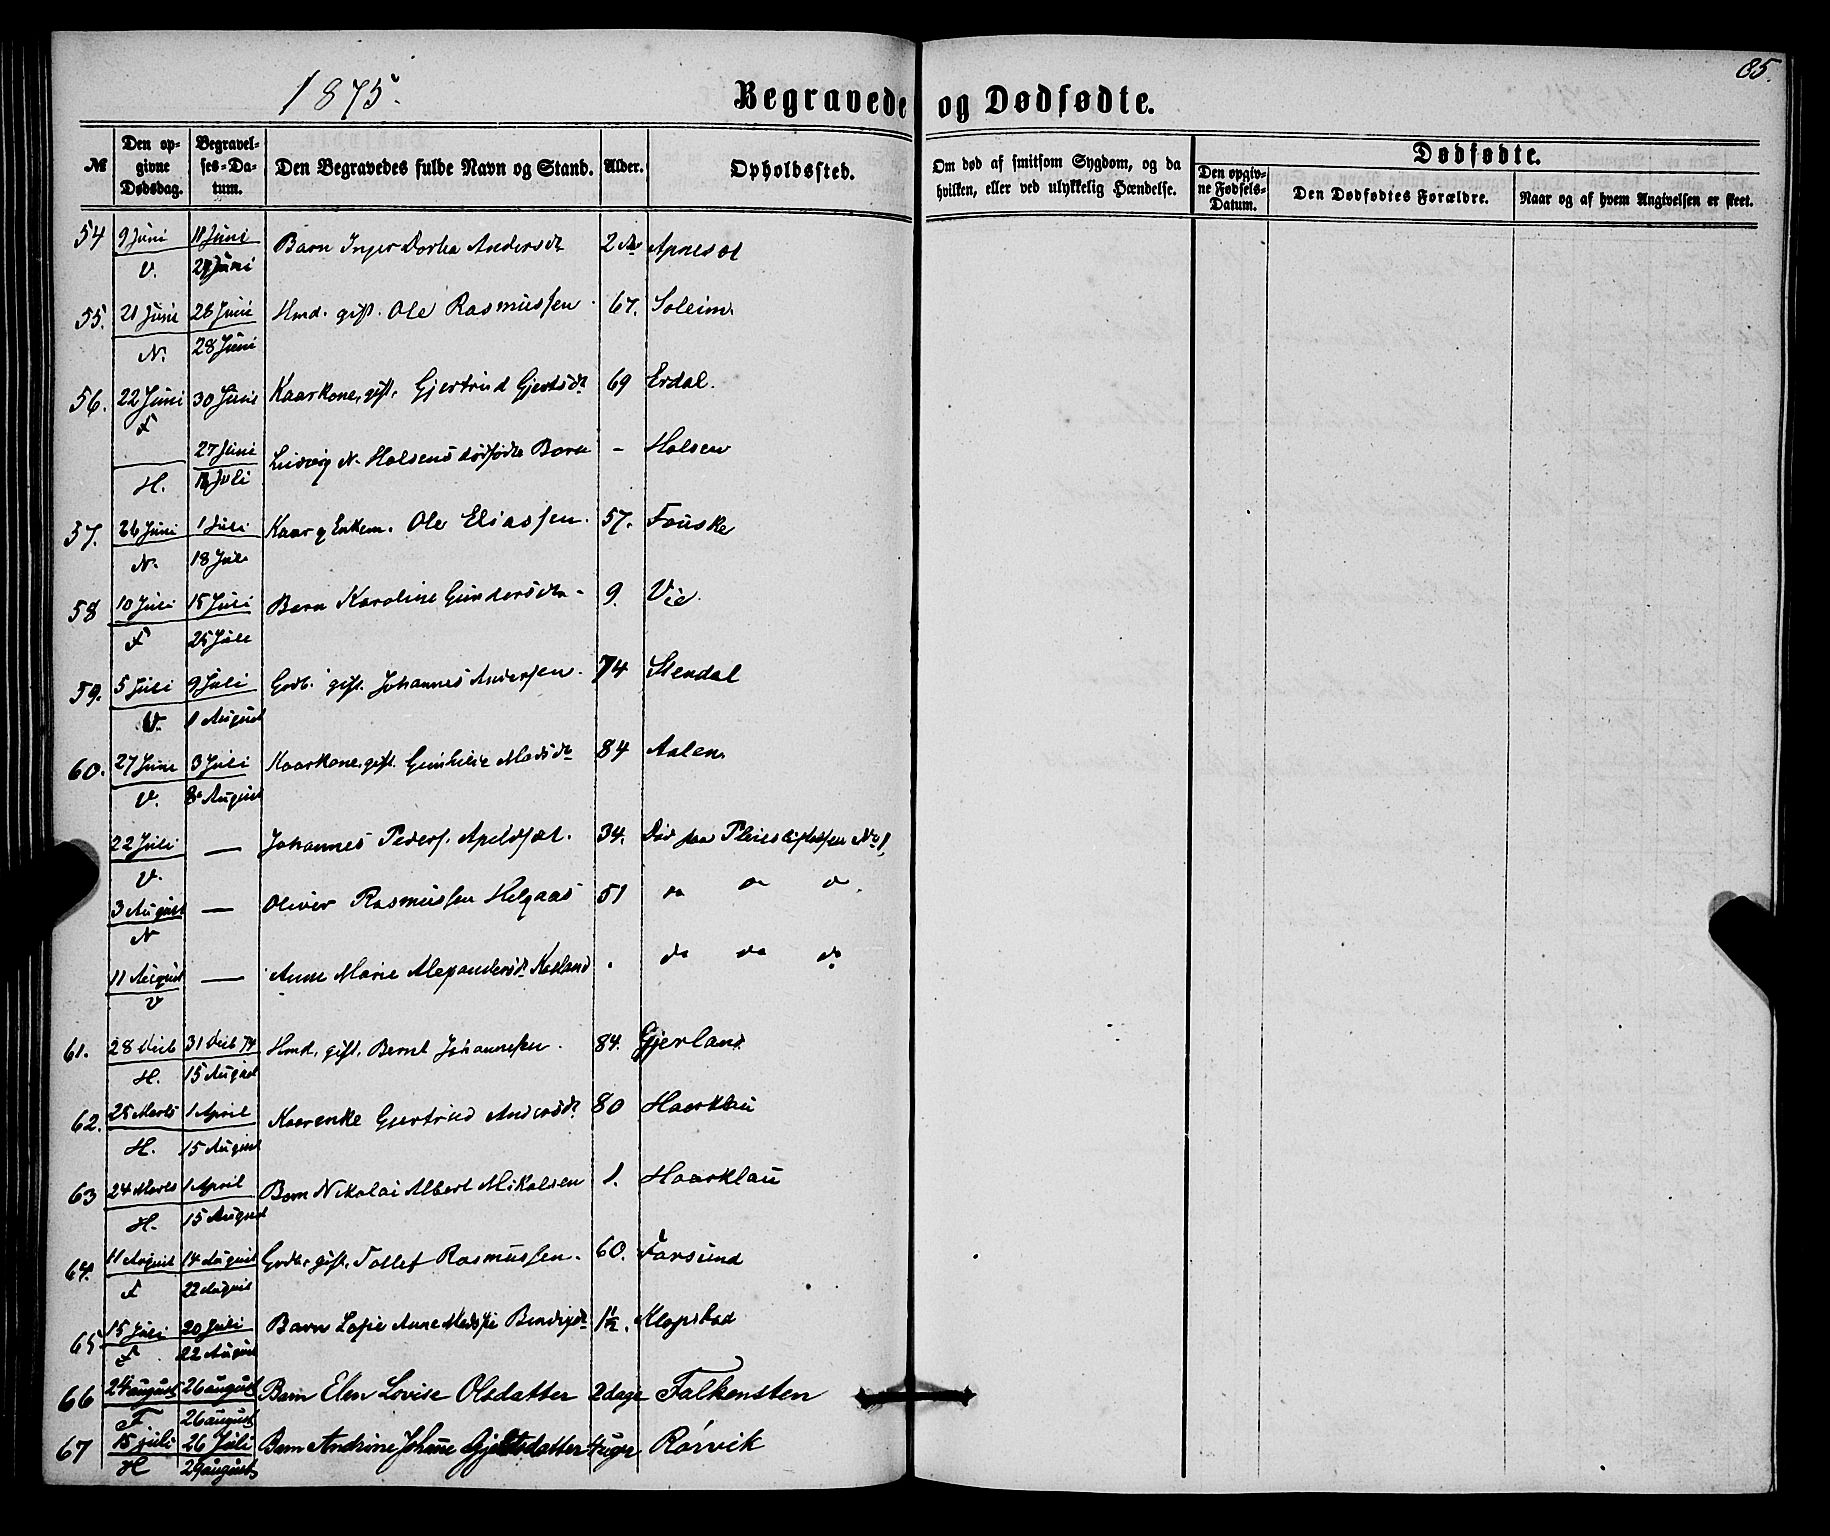 85.
1875.
Begravede og Dødfødte.
№
Den opgivne Dødsdag.
Begravelses-Datum.
Den Begravedes fulde Navn og Stand.
Alder.
Opholdssted.
Om død af smitsom Sygdom, og da hvilken, eller ved ulykkelig Hændelse.
Dødfødte.
Den opgivne Fødsels-Datum.
Den Dødfødtes Forældre.
Naar og af hvem Angivelsen er skeet.
54 9 Juni 11 Juni Barn Inger Dorthea Andersdt 2
V. 27 Juni
55. 21 Juni 26 Juni Hmd. gift. Ole Rasmussen 67. Soleim
N. 28 Juni
56. 22 Juni 30 Juni Kaarkone, gift. Gjertrud Gjertsdt 69 Erdal.
F
27 Juni Ludvig N. Halsens dødfødte Barn - Halsen
H. Juli
57. 26 Juni 1 Juli Kaar og Enkem. Ole Eliassen. 57. Fauske
N. 18 Juli
58 10 Juli 15 Juli Barn Karoline Gundersdt. 9. Vie.
F 25 Juli
59. 5 Juli 9 Juli Grdb. gift. Johannes Andersen. 74 Stendal
V. 1 August
60. 27 Juni 3 Juli Kaarkone, gift. Gunhilde Madsdt 84 Aalen
V. 8 August
22 Juli — Johannes Peders. 34. Død paa Pleiestiftelsen No 1
V.
3 August — Oliver Rasmussen Helgaas 51 do do do
N
11 August — Anne Marie Alexandersdt . do do do
V
61. 28 Decb 31 Decb 74 Hmd. gift. Bernt Johannesen 84. Gjerland
H. 15 August
62. 28 Marts 1 April Kaarenke Gjertrud Andersdt 80 Haarklau
H. 15 August
63 24 Marts 1 April Barn Nikolai Albert Mikalsen 1. Haarklau
H. 15 August
64. 11 August 14 August Grdb. gift. Tollef Rasmussen. 60. Farsund
F 22 August
65 15 Juli 20 Juli Barn Anne 1½. Klopstad
F. 22 August
66 24 august 26 august Barn Elen Lovise Olsdatter 2 dage Falkensten
F. 26 august
67 15 juli 26 Juli Barn Andrine Johanne 4 uger Rørvik
H 29 august